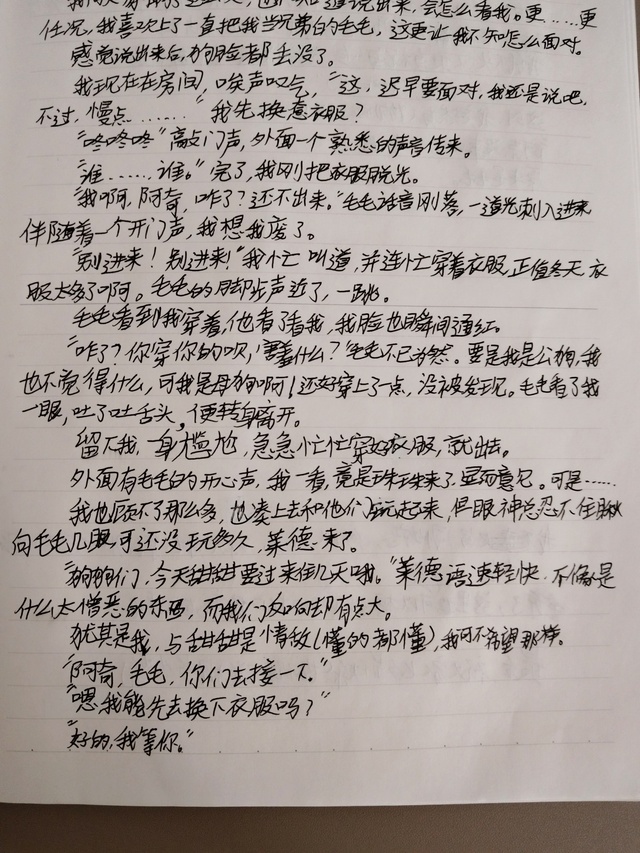 任况，我喜欢上了一直把我当兄弟的毛毛，这更让我不知怎么面对。
感觉说出来后，狗脸都丢没了。
我现在在房间，唉声叹气，“这，迟早要面对，我还是说吧，
不过，慢点………”我先换惹衣服？
“咚咚咚”敲门声，外面一个熟悉的声音传来。
“谁……谁。”完了，我刚把衣服脱光。
“我啊，阿奇，咋了？还不出来。”毛毛话音刚落，一道光刺入进来
伴随着一个开门声，我想我废了。
“别进来！别进来！”我忙叫道，并连忙穿着衣服，正值冬天，衣
服太多了啊。毛毛的脚步声近了，一跳。
毛毛看到我穿着，他看了看我，我脸也瞬间通红。
“咋了？你穿你的呗，害羞什么？”毛毛不已为然。要是我是公狗，我
也不觉得什么，可我是母狗啊！还好穿上了一点，没被发现。毛毛看了我
一眼，吐了吐舌头，便转身离开。
留下我，一身尴尬，急急忙忙穿好衣服，就出去。
外面有毛毛的开心声，我一看，竟是珠珠来了，显而意见。可是……
我也顾不了那么多，也凑上去和他们玩起来，但眼神总忍不住瞅
向毛毛几眼，可还没玩多久，莱德来了。
“狗狗们，今天甜甜要过来住几天哦。”莱德语速轻快，不像是
什么太憎恶的东西，而我们反响却有点大。
犹其是我，与甜甜是情敌（懂的都懂）我可不希望那样。
“阿奇，毛毛，你们去接一下。”
“嗯，我能先去换下衣服吗？”
“好的，我等你。”